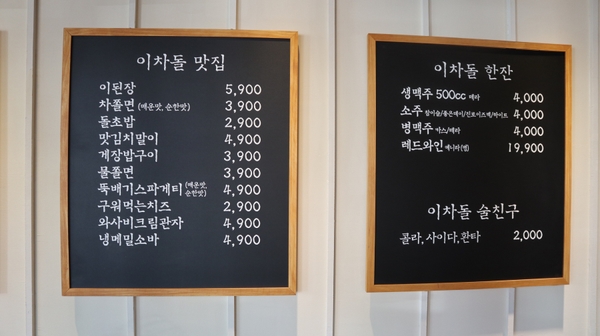 이차돌 맛집
이된장 5,900
차쫄면 (매운맛, 순한맛) 3,900
돌초밥 2,900
맛김치말이 4,900
게장밥구이 3,900
물쫄면 3,900
뚝배기스파게티 (매운맛, 순한맛) 4,900
구워먹는치즈 2,900
와사비크림관자 4,900
냉메밀소바 4,900
이차돌 한잔
생맥주 500cc 테라 4,000
소주 참이슬/좋은데이/진로이즈백/화이트 4,000
병맥주 카스/테라 4,000
레드와인 19,900
이차돌 술친구
콜라, 사이다, 환타 2,000